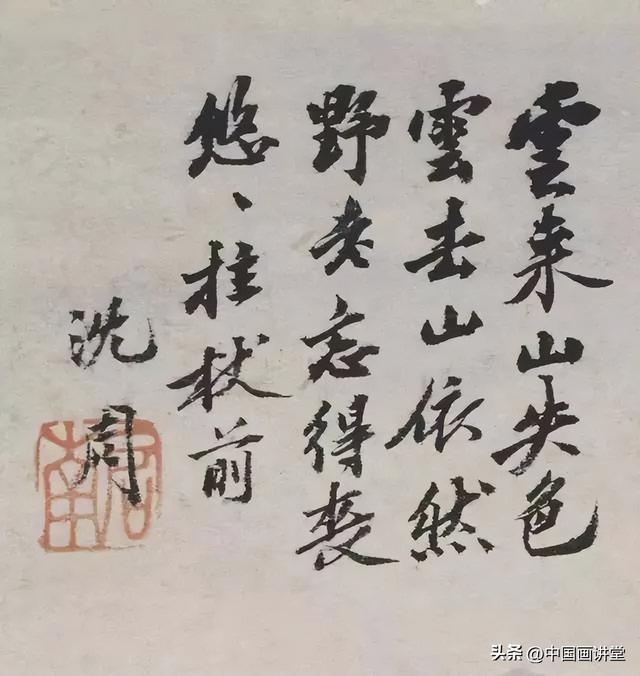 雲来山失色
雲去山依然
野老忘得喪
悠〻拄杖前
沈周
啓南
头条 @中国画讲堂